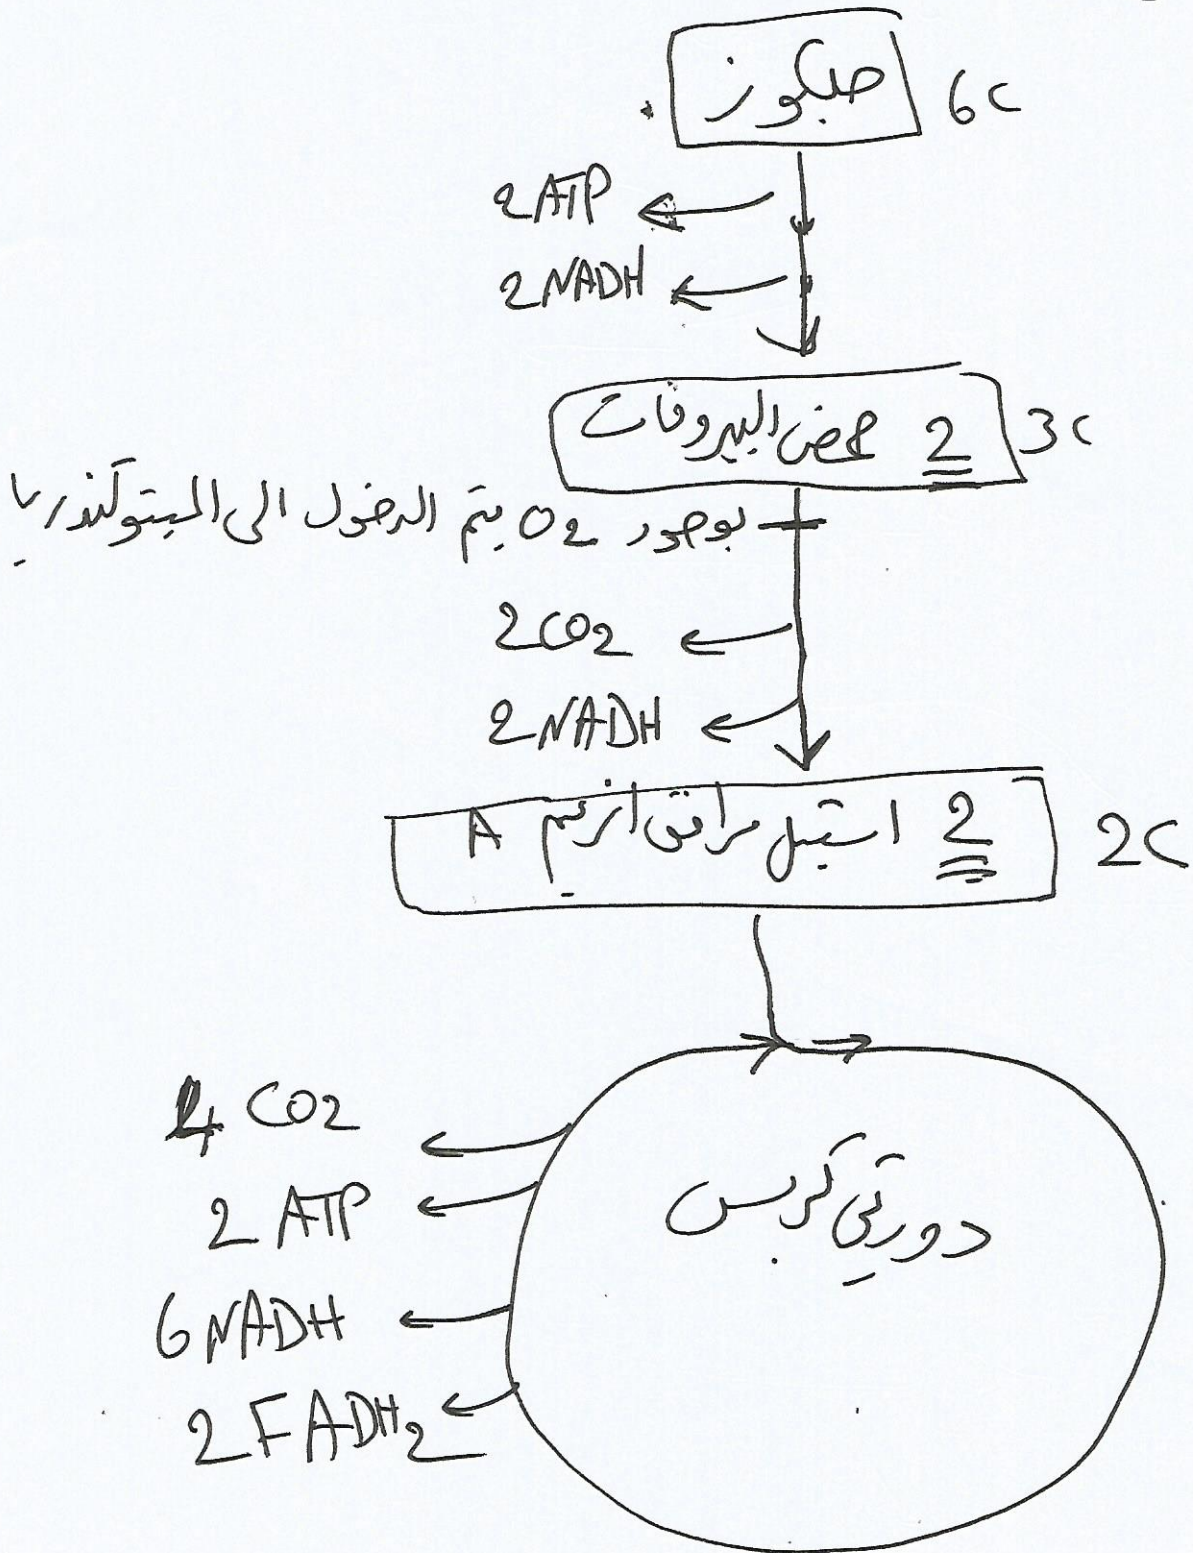 جلكوز 6C
2ATP
2NADH
2 حمض البيروفات 3C
بوجود O2 يتم الدخول الى الميتوكندريا
2CO2
2NADH
2 استيل مرافق انزيم A 2C
4 CO2
دورتي كربس
2 ATP
6 NADH
2FADH2